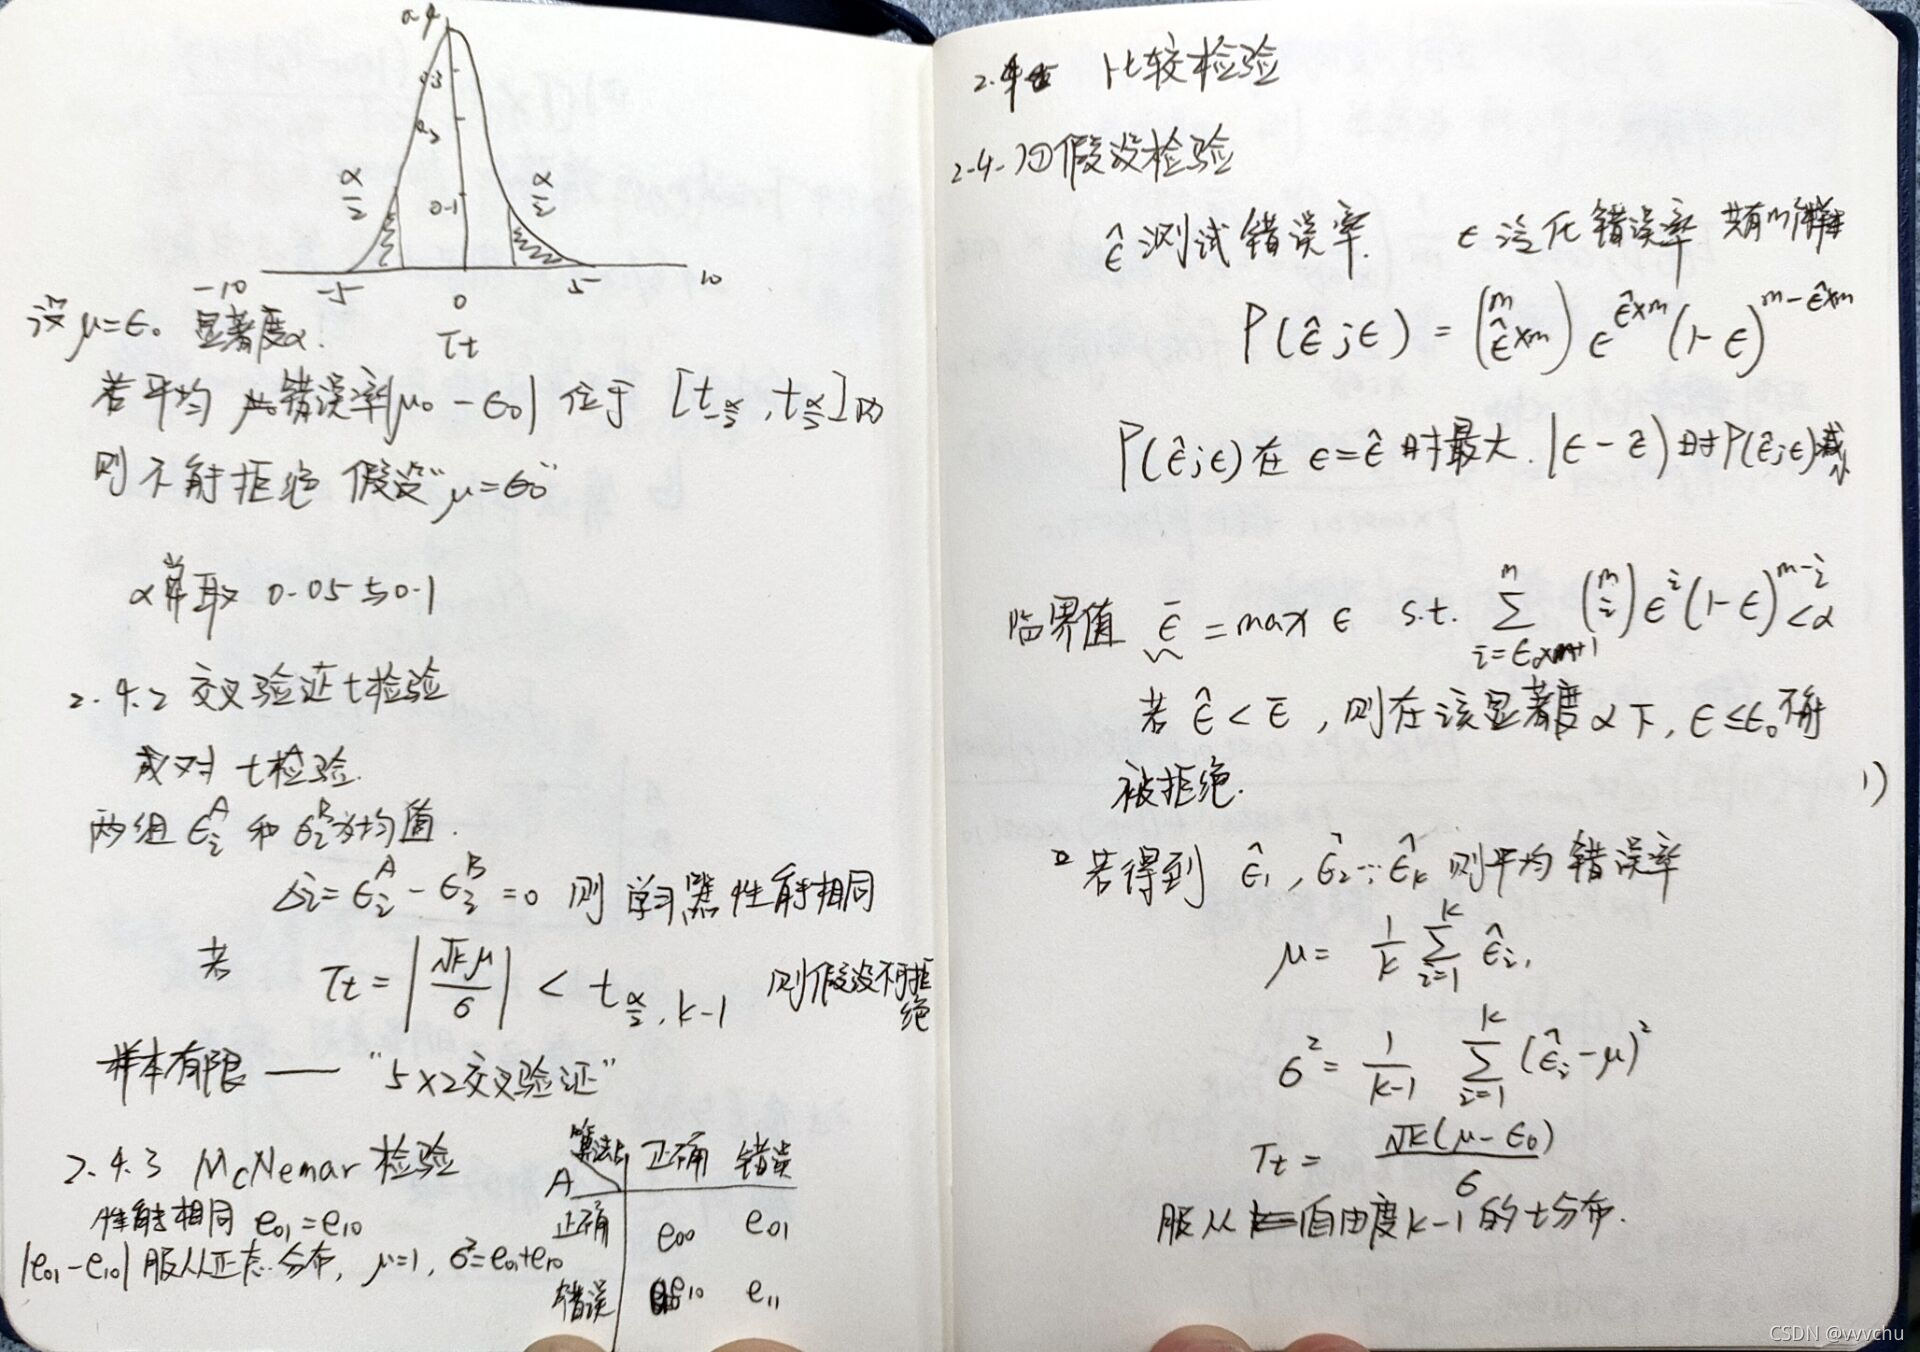 0.4
0.3
0.1
α/2
α/2
-10 -5 0 5 10
τt
设 μ=ϵ₀ 显著度α.
若平均错误率|μ₀-ϵ₀| 位于 [t-α/2, tα/2]内
则不能拒绝 假设"μ=ϵ₀"
α常取 0.05与0.1
2.4.2 交叉验证t检验
成对 t检验.
两组 ϵᵢᴬ 和 ϵᵢᴮ 均值.
Δi = ϵᵢᴬ - ϵᵢᴮ = 0 则 学习器性能相同
若 τt = |√k μ / σ| < tα/2, k-1 则假设不可拒绝
样本有限 —— "5×2交叉验证"
2.4.3 McNemar 检验
性能相同 e01 = e10
|e01-e10| 服从正态分布, μ=1, σ²=e01+e10
算法B 正确 错误
A
正确 e00 e01
错误 e10 e11
2.4 比较检验
2.4.1 假设检验
ϵ̂ 测试错误率. ϵ 泛化错误率 共有m个样本
P(ϵ̂;ϵ) = (m ϵ̂×m) ϵ^(ϵ̂×m) (1-ϵ)^(m-ϵ̂×m)
P(ϵ̂;ϵ) 在 ϵ=ϵ̂ 时最大. 时P(ϵ̂;ϵ)减小
临界值 ϵ̄ = max ϵ s.t. Σ_{i=ϵ₀×m+1}^{m} (m i) ϵ^i (1-ϵ)^(m-i) < α
若 ϵ̂ < ϵ̄, 则在该显著度α下, ϵ≤ϵ₀不能
被拒绝.
1)
若得到 ϵ̂₁, ϵ̂₂…ϵ̂k 则平均 错误率
μ = 1/k Σ_{i=1}^{k} ϵ̂ᵢ,
σ² = 1/(k-1) Σ_{i=1}^{k} (ϵ̂ᵢ-μ)²
τt = √k(μ-ϵ₀) / σ
服从自由度k-1的t分布.
CSDN @vvvchu